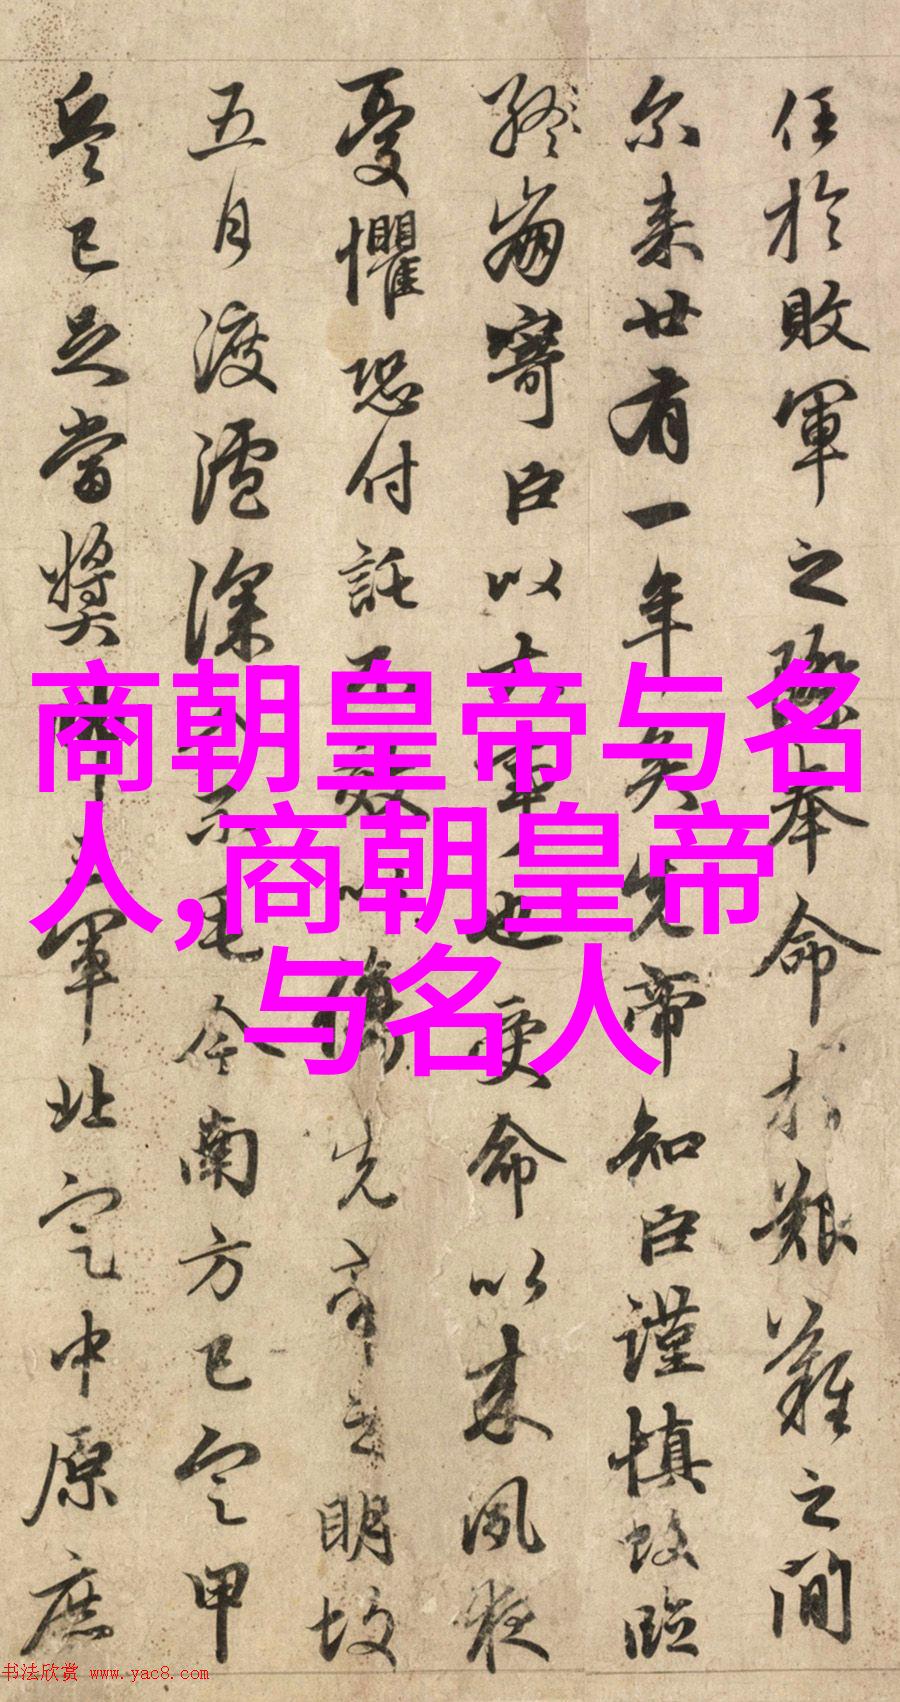 任於敗軍之際奉命於艱難之間
尔来廿有一年矣先帝知臣謹慎故臨
終崩寄臣以大事也受命以来夙夜
憂懼恐付託不效以傷先帝之明故
五月渡瀘深入不毛今南方已定甲
兵已足當獎帥三軍北定中原庶
商朝皇帝与名
人,商朝皇帝
与名人
书法欣赏 www.yac8.com